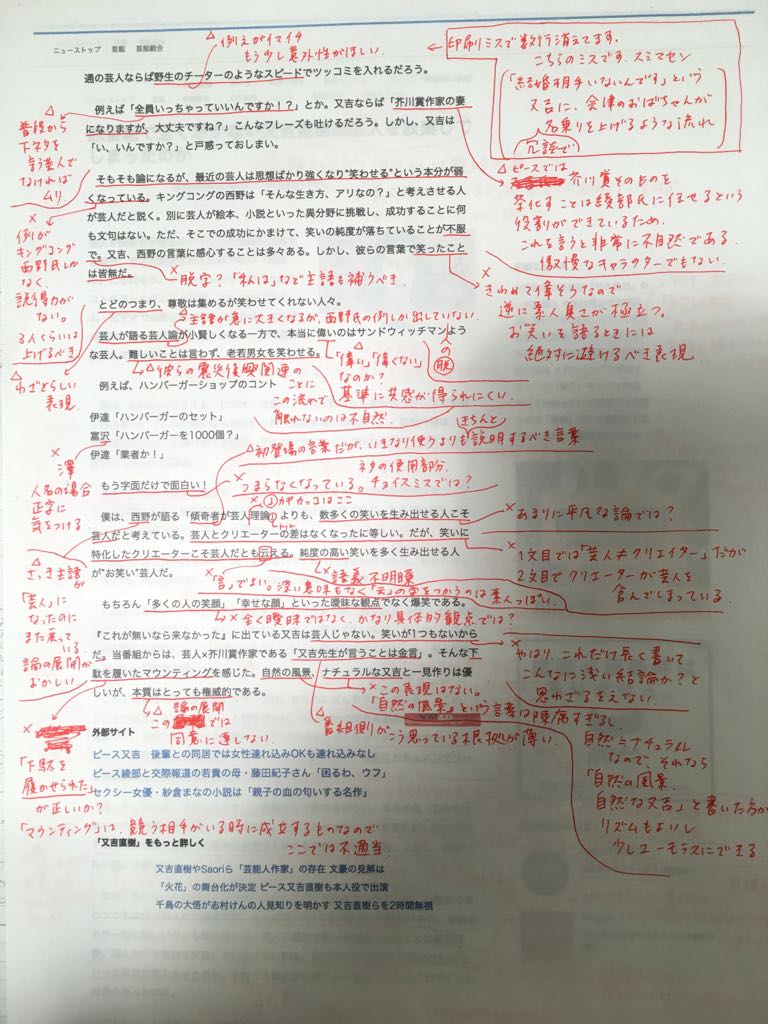 ニューストップ 芸能 芸能総合
△ 例えがイマイチ
もう少し意外性がほしい
印刷ミスで数行消えてます。
こちらのミスです、スミマセン
「結婚相手いないんです」という
又吉に、会津のおばちゃんが
名乗りを上げるような流れ
冗談で
通の芸人ならば野生のチーターのようなスピードでツッコミを入れるだろう。
例えば「全員いっちゃっていいんですか！？」とか。又吉ならば「芥川賞作家の妻
になりますが、大丈夫ですね？」こんなフレーズも吐けるだろう。しかし、又吉は
「い、いんですか？」と戸惑っておしまい。
△
普段から
下ネタを
言う芸人で
なければ
ムリ
そもそも論になるが、最近の芸人は思想ばかり強くなり"笑わせる"という本分が弱
くなっている。キングコングの西野は「そんな生き方、アリなの？」と考えさせる人
が芸人だと説く。別に芸人が絵本、小説といった異分野に挑戦し、成功することに何
も文句はない。ただ、そこでの成功にかまけて、笑いの純度が落ちていることが不服
で。又吉、西野の言葉に感心することは多々ある。しかし、彼らの言葉で笑ったこと
は皆無だ。
×
例が
キングコング
西野氏しか
なく、
説得力が
ない。
3人くらいは
上げるべき
△ ピースでは
芥川賞そのものを
茶化すことは綾部氏に任せるという
役割ができているため、
これを言うと非常に不自然である
傲慢なキャラクターでもない。
× 脱字？「私は」など主語も補うべき
×
きわめて偉そうなので
逆に素人臭さが極立つ。
お笑いを語るときには
絶対に避けるべき表現
とどのつまり、尊敬は集めるが笑わせてくれない人々。
△
わざとらしい
表現
△主語が急に大きくなるが、西野氏の例しか出していない
芸人が語る芸人論が小賢しくなる一方で、本当に偉いのはサンドウィッチマンよう
な芸人。難しいことは言わず、老若男女を笑わせる。
人の
脱
「偉い」「偉くない」
なのか？
基準に共感が得られにくい
△彼らの震災復興関連の
ことに
この流れで
触れないのは不自然
例えば、ハンバーガーショップのコント
伊達「ハンバーガーのセット」
富沢「ハンバーガーを1000個？」
伊達「業者か！」
×
澤
人名の場合
正字に
気をつける
△初登場の言葉だが、いきなり使うよりもきちんと説明するべき言葉
もう字面だけで面白い！
ネタの使用部分、
× つまらなくなっている。チョイスミスでは？
× 」カギカッコはここ
僕は、西野が語る「傾奇者が芸人理論」よりも、数多くの笑いを生み出せる人こそ
芸人だと考えている。芸人とクリエーターの差はなくなったに等しい。だが、笑いに
特化したクリエーターこそ芸人だとも云える。純度の高い笑いを多く生み出せる人
が"お笑い"芸人だ。
トル
× あまりに平凡な論では？
×
1文目では「芸人≠クリエイター」だが
2文目でクリエーターが芸人を
含んでしまっている
△
さっき主語が
「芸人」に
なったのに
また戻っている
論の展開が
おかしい
×「言」でよい。深い意味もなく「云」の字をつかうのは素人っぽい。
語義不明瞭
もちろん「多くの人の笑顔」「幸せな顔」といった曖昧な観点でなく爆笑である。
× 全く曖昧ではなく、かなり具体的観点では？
『これが無いなら来なかった』に出ている又吉は芸人じゃない。笑いが1つもないから
だ。当番組からは、芸人×芥川賞作家である「又吉先生が言うことは金言」。そんな下
駄を履いたマウンティングを感じた。自然の風景、ナチュラルな又吉と一見作りは優
しいが、本質はとっても権威的である。
×
やはり、これだけ長く書いて
こんなに浅い結論か？と
思わざるをえない
△ 論の展開
この では
同意に達しない
× この表現はない。
「自然の風景」という言葉は陳腐すぎるし
自然＝ナチュラル
なので、それなら
「自然の風景、
自然な又吉」と書いた方が
リズムもよいし
少しユーモラスにできる
△
番組側がこう思っている根拠が薄い
×
「下駄を
履かせられた」
が正しいか？
「マウンティング」は、競う相手がいる時に成立するものなので
ここでは不適当
外部サイト
ピース又吉 後輩との同居では女性連れ込みOKも連れ込みなし
ピース綾部と交際報道の若貴の母・藤田紀子さん「困るわ、ウフ」
セクシー女優・紗倉まなの小説は「親子の血の匂いする名作」
「又吉直樹」をもっと詳しく
又吉直樹やSaoriら「芸能人作家」の存在 文豪の見解は
「火花」の舞台化が決定 ピース又吉直樹も本人役で出演
千鳥の大悟が志村けんの人見知りを明かす 又吉直樹らを2時間無視